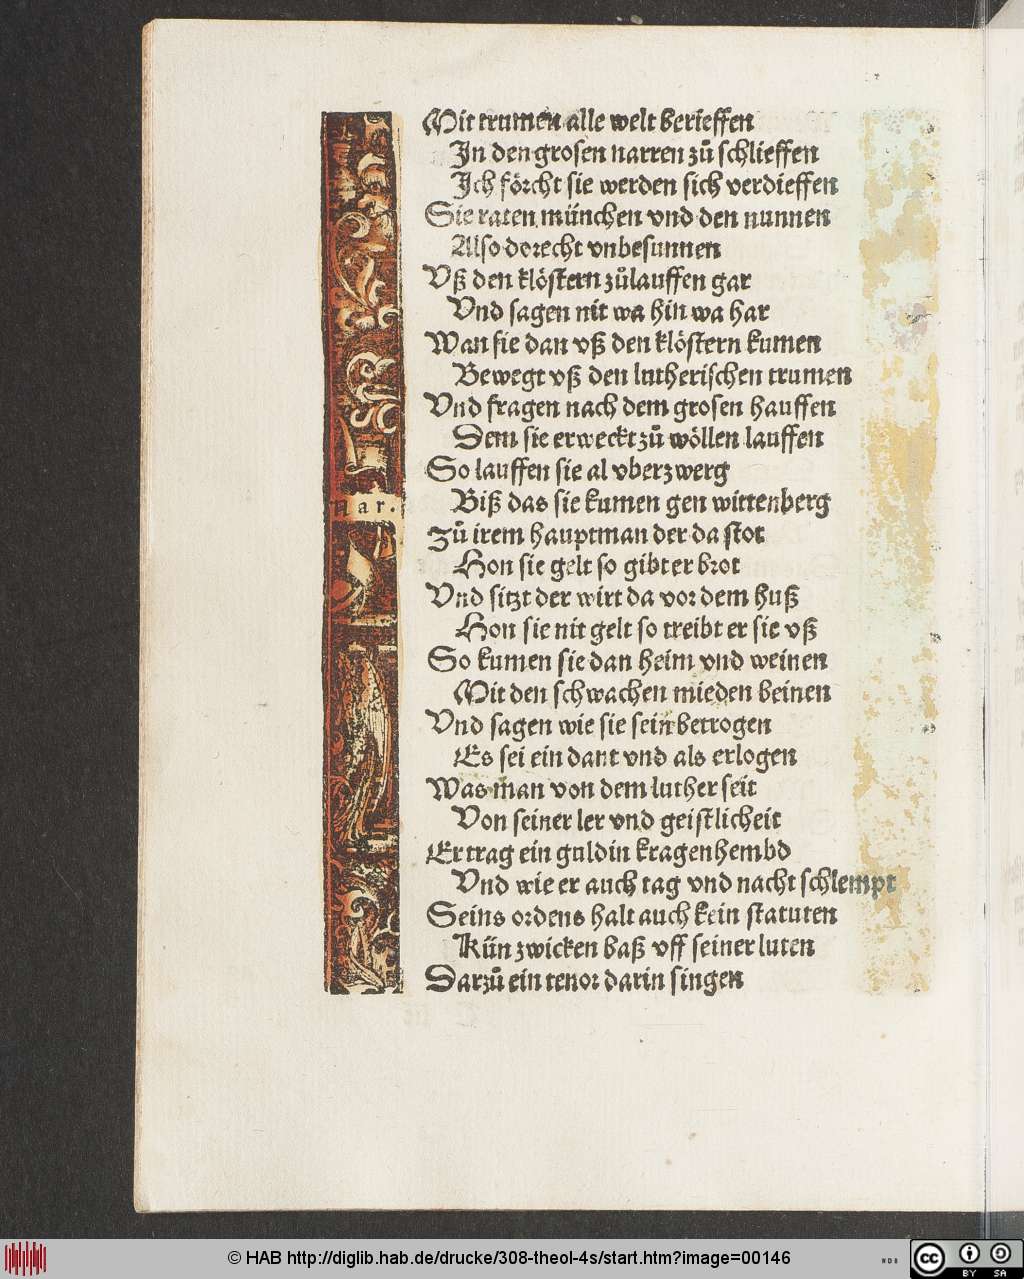 Mit trumen alle welt berieffen
In den grosen narren zů schlieffen
Ich förcht sie werden sich verdieffen
Sie raten münchen vnd den nunnen
Also dorecht vnbesunnen
Vß den klöstern zůlauffen gar
Vnd sagen nit wa hin wa har
Wan sie dan vß den klöstern kumen
Bewegt vß den lutherischen trumen
Vnd fragen nach dem grosen hauffen
Dem sie erweckt zů wöllen lauffen
So lauffen sie al vberzwerg
Biß das sie kumen gen wittenberg
Zů irem hauptman der da stot
Hon sie gelt so gibt er brot
Vnd sitzt der wirt da vor dem huß
Hon sie nit gelt so treibt er sie vß
So kumen sie dan heim vnd weinen
Mit den schwachen mieden beinen
Vnd sagen wie sie sein betrogen
Es sei ein dant vnd als erlogen
Was man von dem luther seit
Von seiner ler vnd geistlicheit
Er trag ein guldin kragenhembd
Vnd wie er auch tag vnd nacht schlempt
Seins ordens halt auch kein statuten
Kün zwicken baß vff seiner luten
Darzů ein tenor darin singen
Nar.
© HAB http://diglib.hab.de/drucke/308-theol-4s/start.htm?image=00146
WDB
cc BY SA